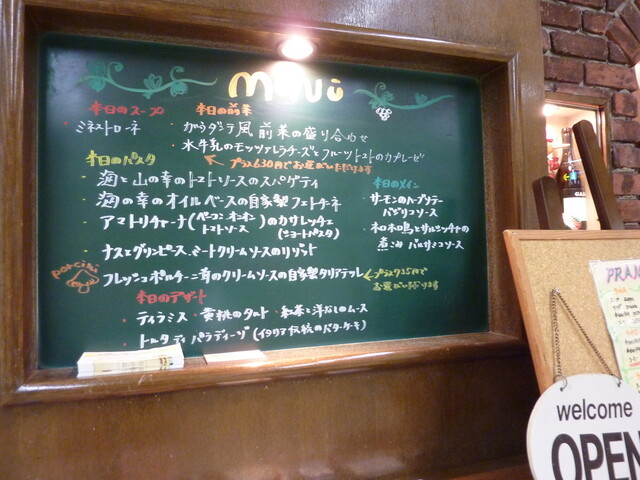 menu
本日のスープ
・ミネストローネ
本日の前菜
・カラダテ風 前菜の盛り合わせ
・水牛乳のモッツァレラチーズとフルーツトマトのカプレーゼ
プラス630円でお選びいただけます
本日のパスタ
・海と山の幸のトマトソースのスパゲティ
・海の幸のオイルベースの自家製フェトチーネ
・アマトリチャーナ(ベーコン・オニオン トマトソース)のカサレッチェ(ショートパスタ)
・ナスとグリンピース、ミートクリームソースのリゾット
porcini
フレッシュポルチーニ茸のクリームソースの自家製タリアテッレ
プラス735円でお選びいただけます
本日のメイン
・サーモンのハーブソテー
バジリコソース
・ホロホロ鳥とサルシッチャの
煮込 バルサミコソース
本日のデザート
・ティラミス ・黄桃のタルト ・紅茶と洋なしのムース
・トルタ ディ パラディーゾ(イタリア伝統のバターケーキ)
PRAN
welcome
OPEN